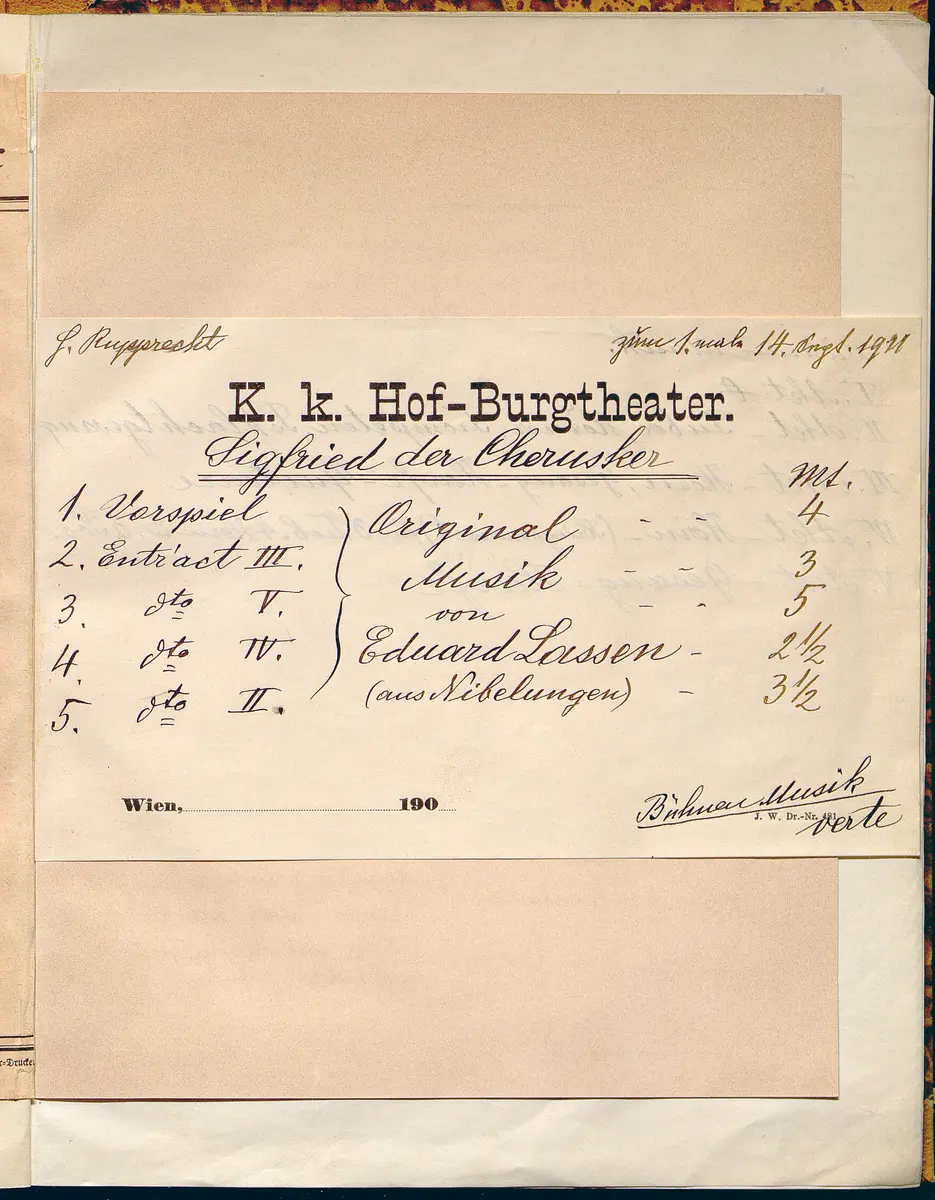 G. Rupprecht
zum 1. male 14. Sept. 1911
K. k. Hof-Burgtheater.
Sigfried der Cherusker
Mt.
1. Vorspiel
Original - - 4
2. Entr'act III.
Musik - - 3
3. dto V.
von - - 5
4. dto IV.
Eduard Lassen - 2 1/2
5. dto II.
(aus Nibelungen) - 3 1/2
Wien, 190
Bühnen Musik
J. W. Dr.-Nr. 481.
verte